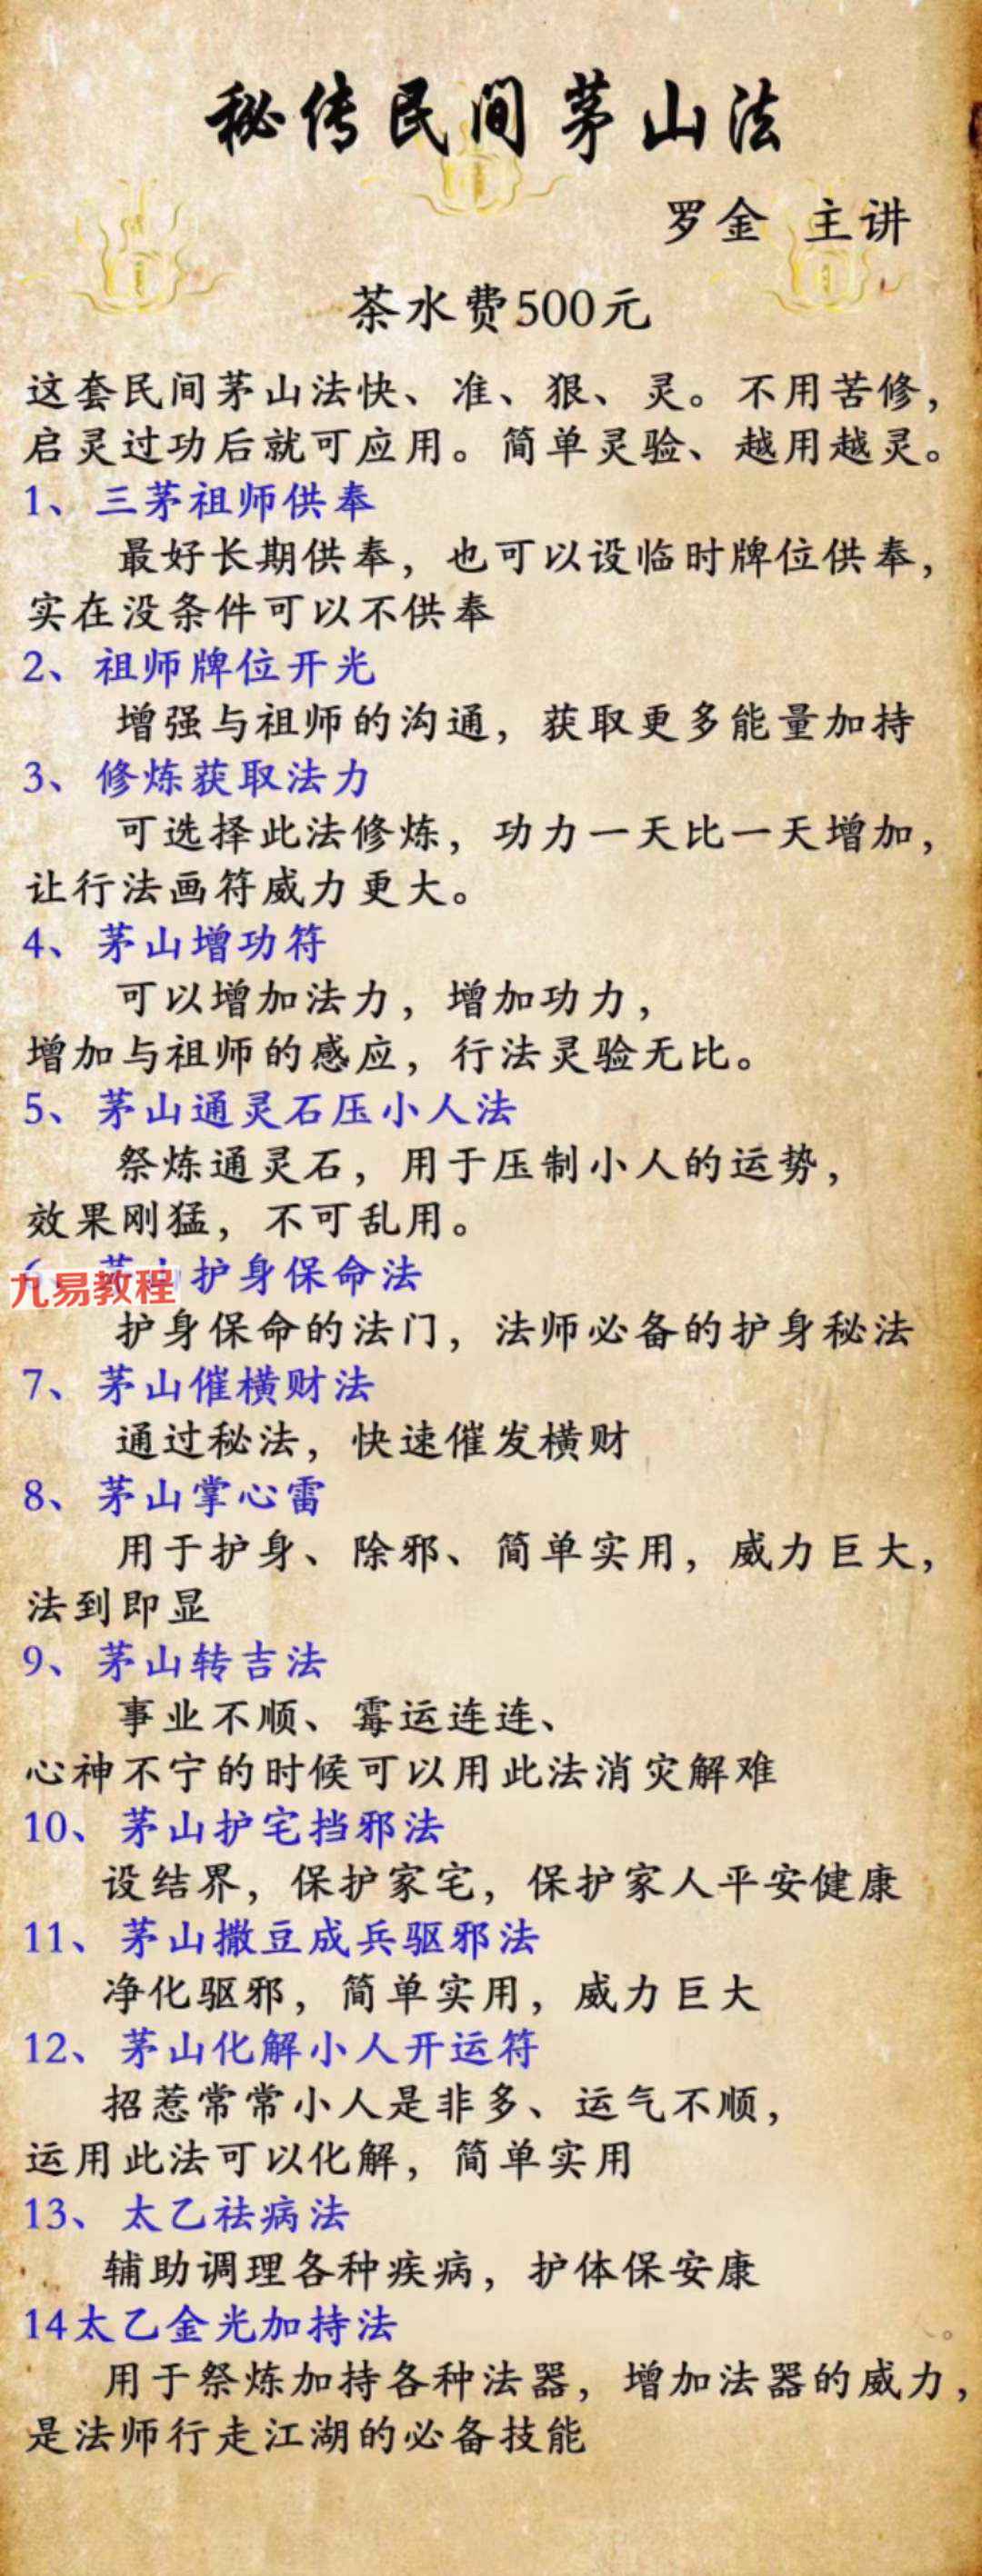 秘传民间茅山法
罗金 主讲
茶水费500元
这套民间茅山法快、准、狠、灵。不用苦修，
启灵过功后就可应用。简单灵验、越用越灵。
1、三茅祖师供奉
最好长期供奉，也可以设临时牌位供奉，
实在没条件可以不供奉
2、祖师牌位开光
增强与祖师的沟通，获取更多能量加持
3、修炼获取法力
可选择此法修炼，功力一天比一天增加，
让行法画符威力更大。
4、茅山增功符
可以增加法力，增加功力，
增加与祖师的感应，行法灵验无比。
5、茅山通灵石压小人法
祭炼通灵石，用于压制小人的运势，
效果刚猛，不可乱用。
护身保命法
九易教程
护身保命的法门，法师必备的护身秘法
7、茅山催横财法
通过秘法，快速催发横财
8、茅山掌心雷
用于护身、除邪、简单实用，威力巨大，
法到即显
9、茅山转吉法
事业不顺、霉运连连、
心神不宁的时候可以用此法消灾解难
10、茅山护宅挡邪法
设结界，保护家宅，保护家人平安健康
11、茅山撒豆成兵驱邪法
净化驱邪，简单实用，威力巨大
12、茅山化解小人开运符
招惹常常小人是非多、运气不顺，
运用此法可以化解，简单实用
13、太乙祛病法
辅助调理各种疾病，护体保安康
14太乙金光加持法
用于祭炼加持各种法器，增加法器的威力，
是法师行走江湖的必备技能